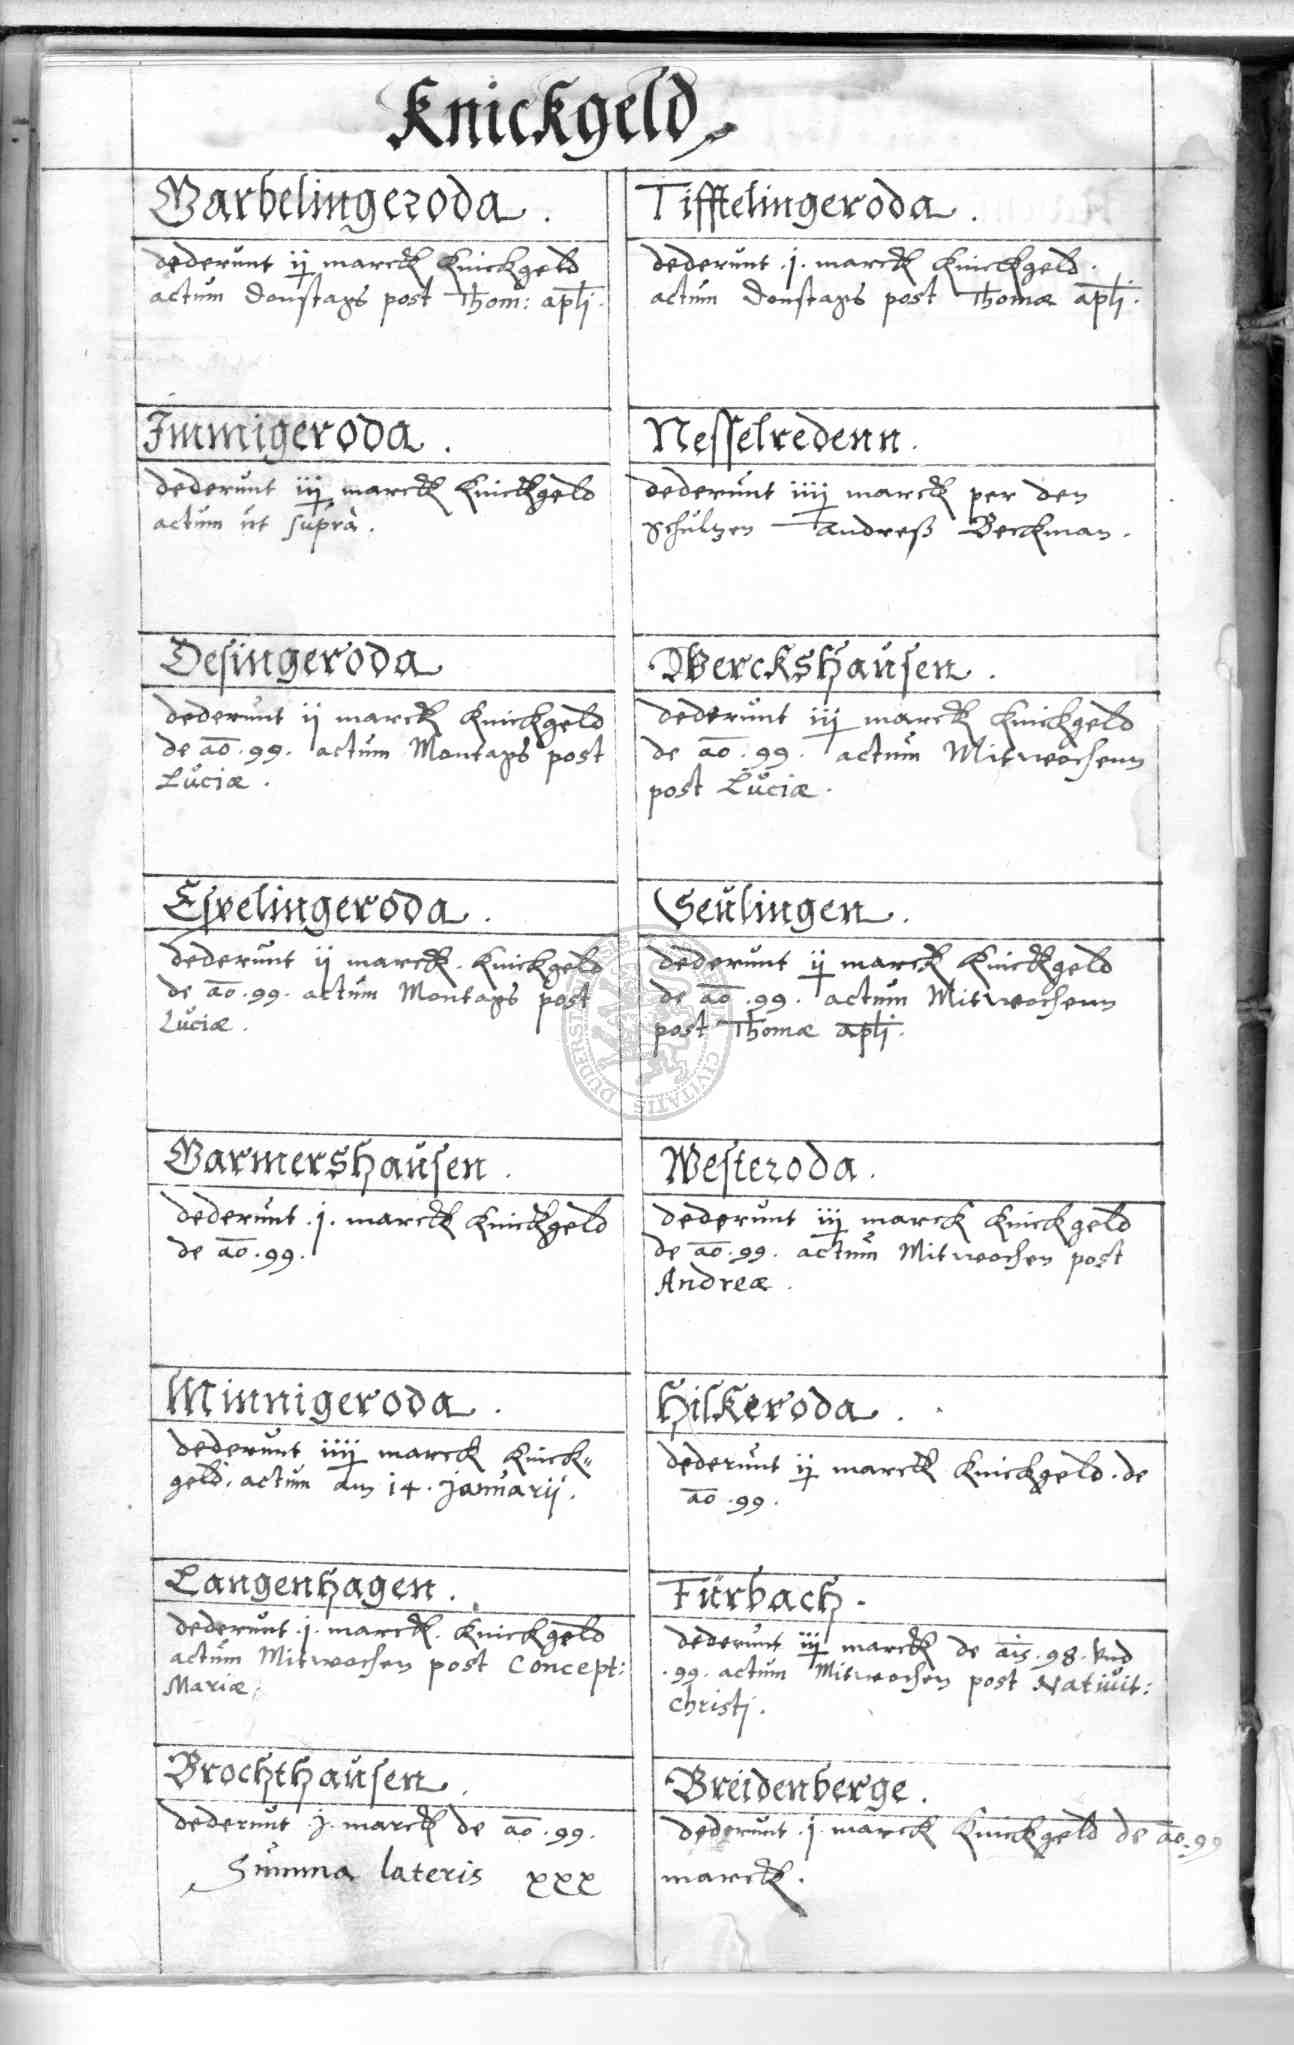 Knickgeld
Garbelingeroda.
dederunt ij marck Knickgeld
actum Donstags post Thom: apli.
Tifftelingeroda.
dederunt .j. marck Knickgeld.
actum Donstags post Thomæ apli.
Immigeroda.
dederunt iij marck Knickgeld
actum ut suprà.
Nesselredenn.
dederunt iiij marck per den
Schultzen Andreß Beckman.
Desingeroda
dederunt ij marck Knickgeld
de ao .99. actum Montags post
Luciæ.
Werckshausen.
dederunt iij marck Knickgeld
de ao .99. actum Mitwochenn
post Luciæ.
Espelingeroda.
dederunt ij marck. Knickgeld
de ao .99. actum Montags post
Luciæ.
Seulingen.
dederunt ij marck Knickgeld
de ao .99. actum Mitwochenn
post Thomæ apli.
Garmershausen.
dederunt .j. marck Knickgeld
de ao .99.
Westeroda.
dederunt iij marck Knickgeld
de ao .99. actum Mitwochen post
Andreæ.
Minnigeroda.
dederunt iiij marck Knick-
geld. actum am 14. januarij.
Hilkeroda.
dederunt ij marck Knickgeld. de
ao .99.
Langenhagen.
dederunt .j. marck. Knickgeld
actum Mitwochen post Concept:
Mariæ.
Fürbach.
dederunt iij marck de ais .98. und
.99. actum Mitwochen post Nativit:
Christj.
Brochthausen.
dederunt .j. marck de ao .99.
Breidenberge.
dederunt .j. marck Knickgeld de ao .99
Summa lateris xxx marck.